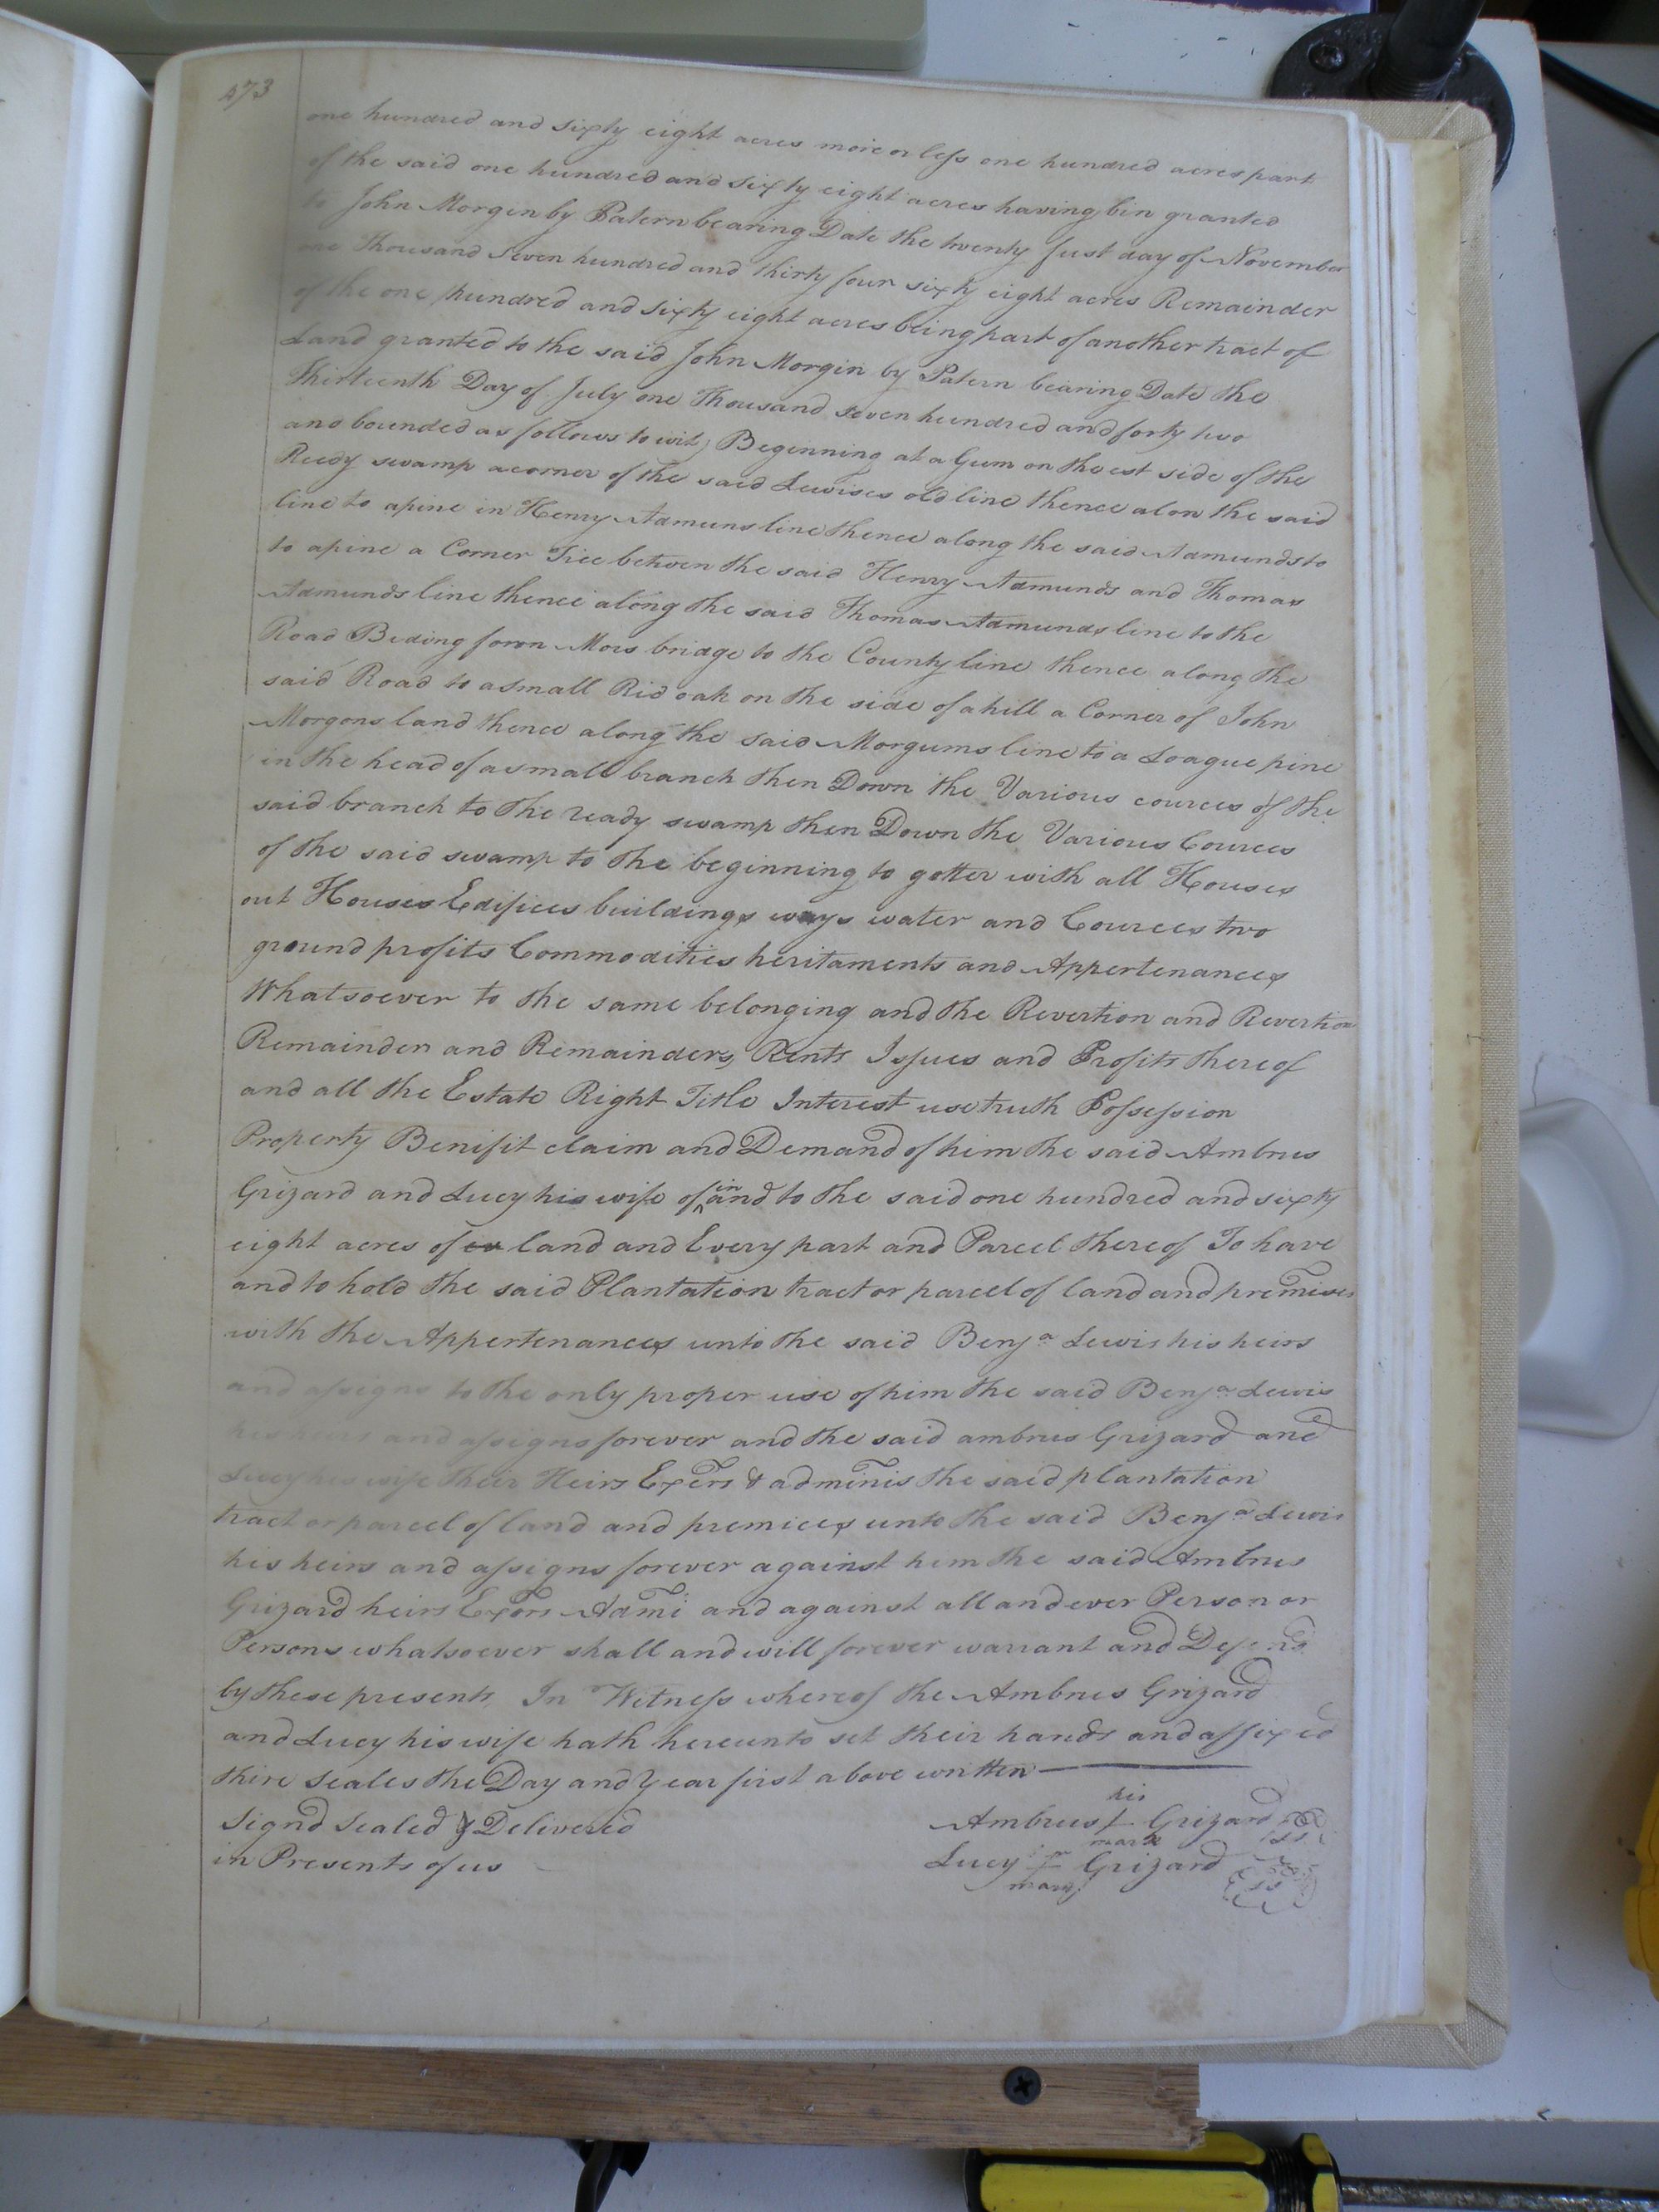 473
one hundred and sixty eight acres more or less one hundred acres part
of the said one hundred and sixty eight acres having bin granted
to John Morgin by Patern bearing Date the twenty fust day of November
one Thousand Seven hundred and thirty four sixty eight acres Remainder
of the one hundred and sixty eight acres being part of another tract of
Land granted to the said John Morgin by Patern bearing Date the
Thirteenth Day of July one Thousand seven hundred and forty two
and bounded as follows to wit; Beginning at a Gum on the est side of the
Reedy swamp a corner of the said Lewises old line thence alon the said
line to a pine in Henry Admuns line thence along the said Admunds to
to a pine a Corner Tree between the said Henry Admunds and Thomas
Admunds line thence along the said Thomas Admunds line to the
Road Beding from Mors bridge to the County line thence along the
said Road to a small Rid oak on the side of a hill a Corner of John
Morgons land thence along the said Morgums line to a Loague pine
in the head of a small branch then Down the Various cources of the
said branch to the ready swamp then Down the Various Cources
of the said swamp to the beginning to gotter with all Houses
out Houses Edifices buildings ways water and Cources two
ground profits Commodities heritaments and Appertenances
Whatsoever to the same belonging and the Revertion and Revertion
Remainder and Remainders, Rents Issues and Profits thereof
and all the Estate Right Title Interest use truth Possession
Property Benifit claim and Demand of him the said Ambrus
Grizard and Lucy his wife of in and to the said one hundred and sixty
eight acres of land and Every part and Parcel thereof To have
and to hold the said Plantation tract or parcel of land and premises
with the Appertenances unto the said Benja Lewis his heirs
and assigns to the only proper use of him the said Benja Lewis
his heirs and assigns forever and the said ambrus Grizard and
Lucy his wife their Heirs Exers & adminis the said plantation
tract or parcel of land and premices unto the said Benja Lewis
his heirs and assigns forever against him the said Ambrus
Grizard heirs Exors Admi and against all and ever Person or
Persons whatsoever shall and will forever warrant and Defend
by these presents, In Witness whereof the Ambrus Grizard
and Lucy his wife hath hereunto set their hands and affixed
thire seales the Day and Year first above written
his
Signd Sealed & Delivered Ambrus Grizard
mark
in Presents of us Lucy Grizard
mark